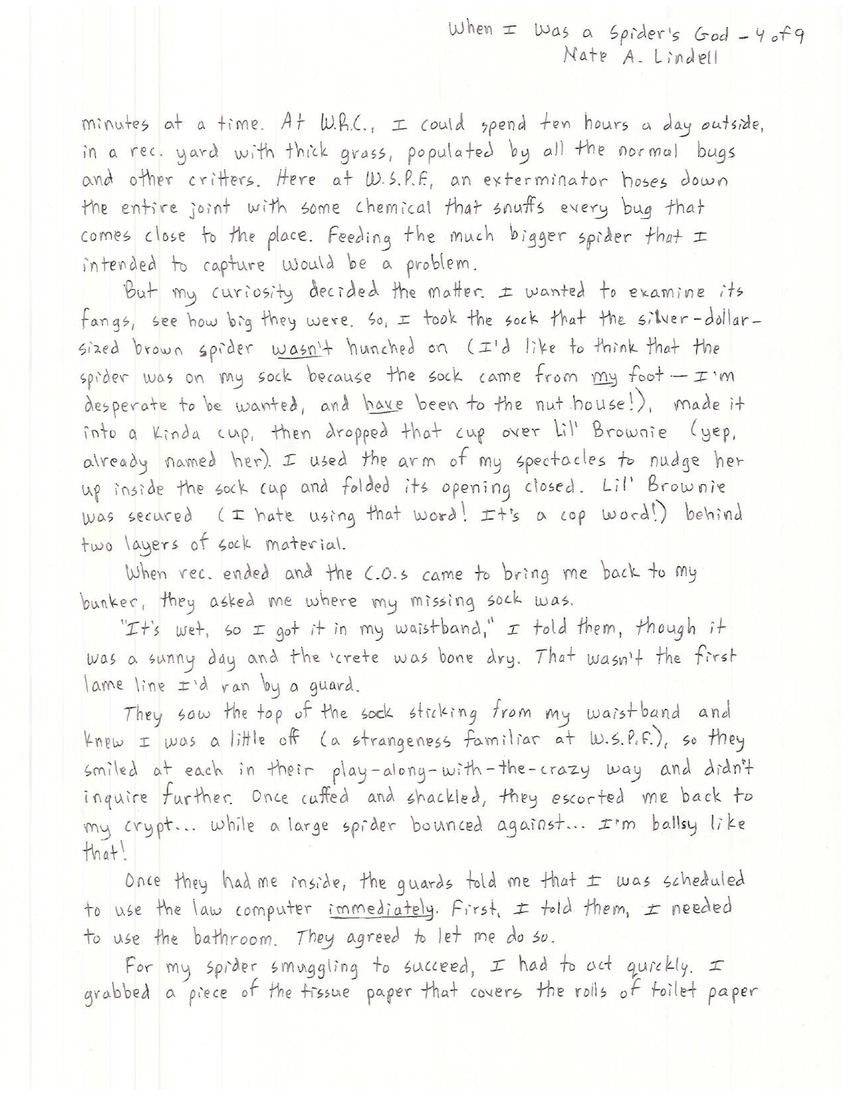 When I Was a Spider's God - 4 of 9
Nate A. Lindell
minutes at a time. At W.R.C., I could spend ten hours a day outside,
in a rec. yard with thick grass, populated by all the normal bugs
and other critters. Here at W.S.P.F., an exterminator hoses down
the entire joint with some chemical that snuffs every bug that
comes close to the place. Feeding the much bigger spider that I
intended to capture would be a problem.
But my curiosity decided the matter. I wanted to examine its
fangs, see how big they were. So, I took the sock that the silver-dollar-
sized brown spider wasn't hunched on (I'd like to think that the
spider was on my sock because the sock came from my foot — I'm
desperate to be wanted, and have been to the nut house!), made it
into a kinda cup, then dropped that cup over Lil' Brownie (yep,
already named her). I used the arm of my spectacles to nudge her
up inside the sock cup and folded its opening closed. Lil' Brownie
was secured (I hate using that word! It's a cop word!) behind
two layers of sock material.
When rec. ended and the C.O.s came to bring me back to my
bunker, they asked me where my missing sock was.
"It's wet, so I got it in my waistband," I told them, though it
was a sunny day and the 'crete was bone dry. That wasn't the first
lame line I'd ran by a guard.
They saw the top of the sock sticking from my waistband and
knew I was a little off (a strangeness familiar at W.S.P.F.), so they
smiled at each in their play-along-with-the-crazy way and didn't
inquire further. Once cuffed and shackled, they escorted me back to
my crypt... while a large spider bounced against... I'm ballsy like
that!
Once they had me inside, the guards told me that I was scheduled
to use the law computer immediately. First, I told them, I needed
to use the bathroom. They agreed to let me do so.
For my spider smuggling to succeed, I had to act quickly. I
grabbed a piece of the tissue paper that covers the rolls of toilet paper